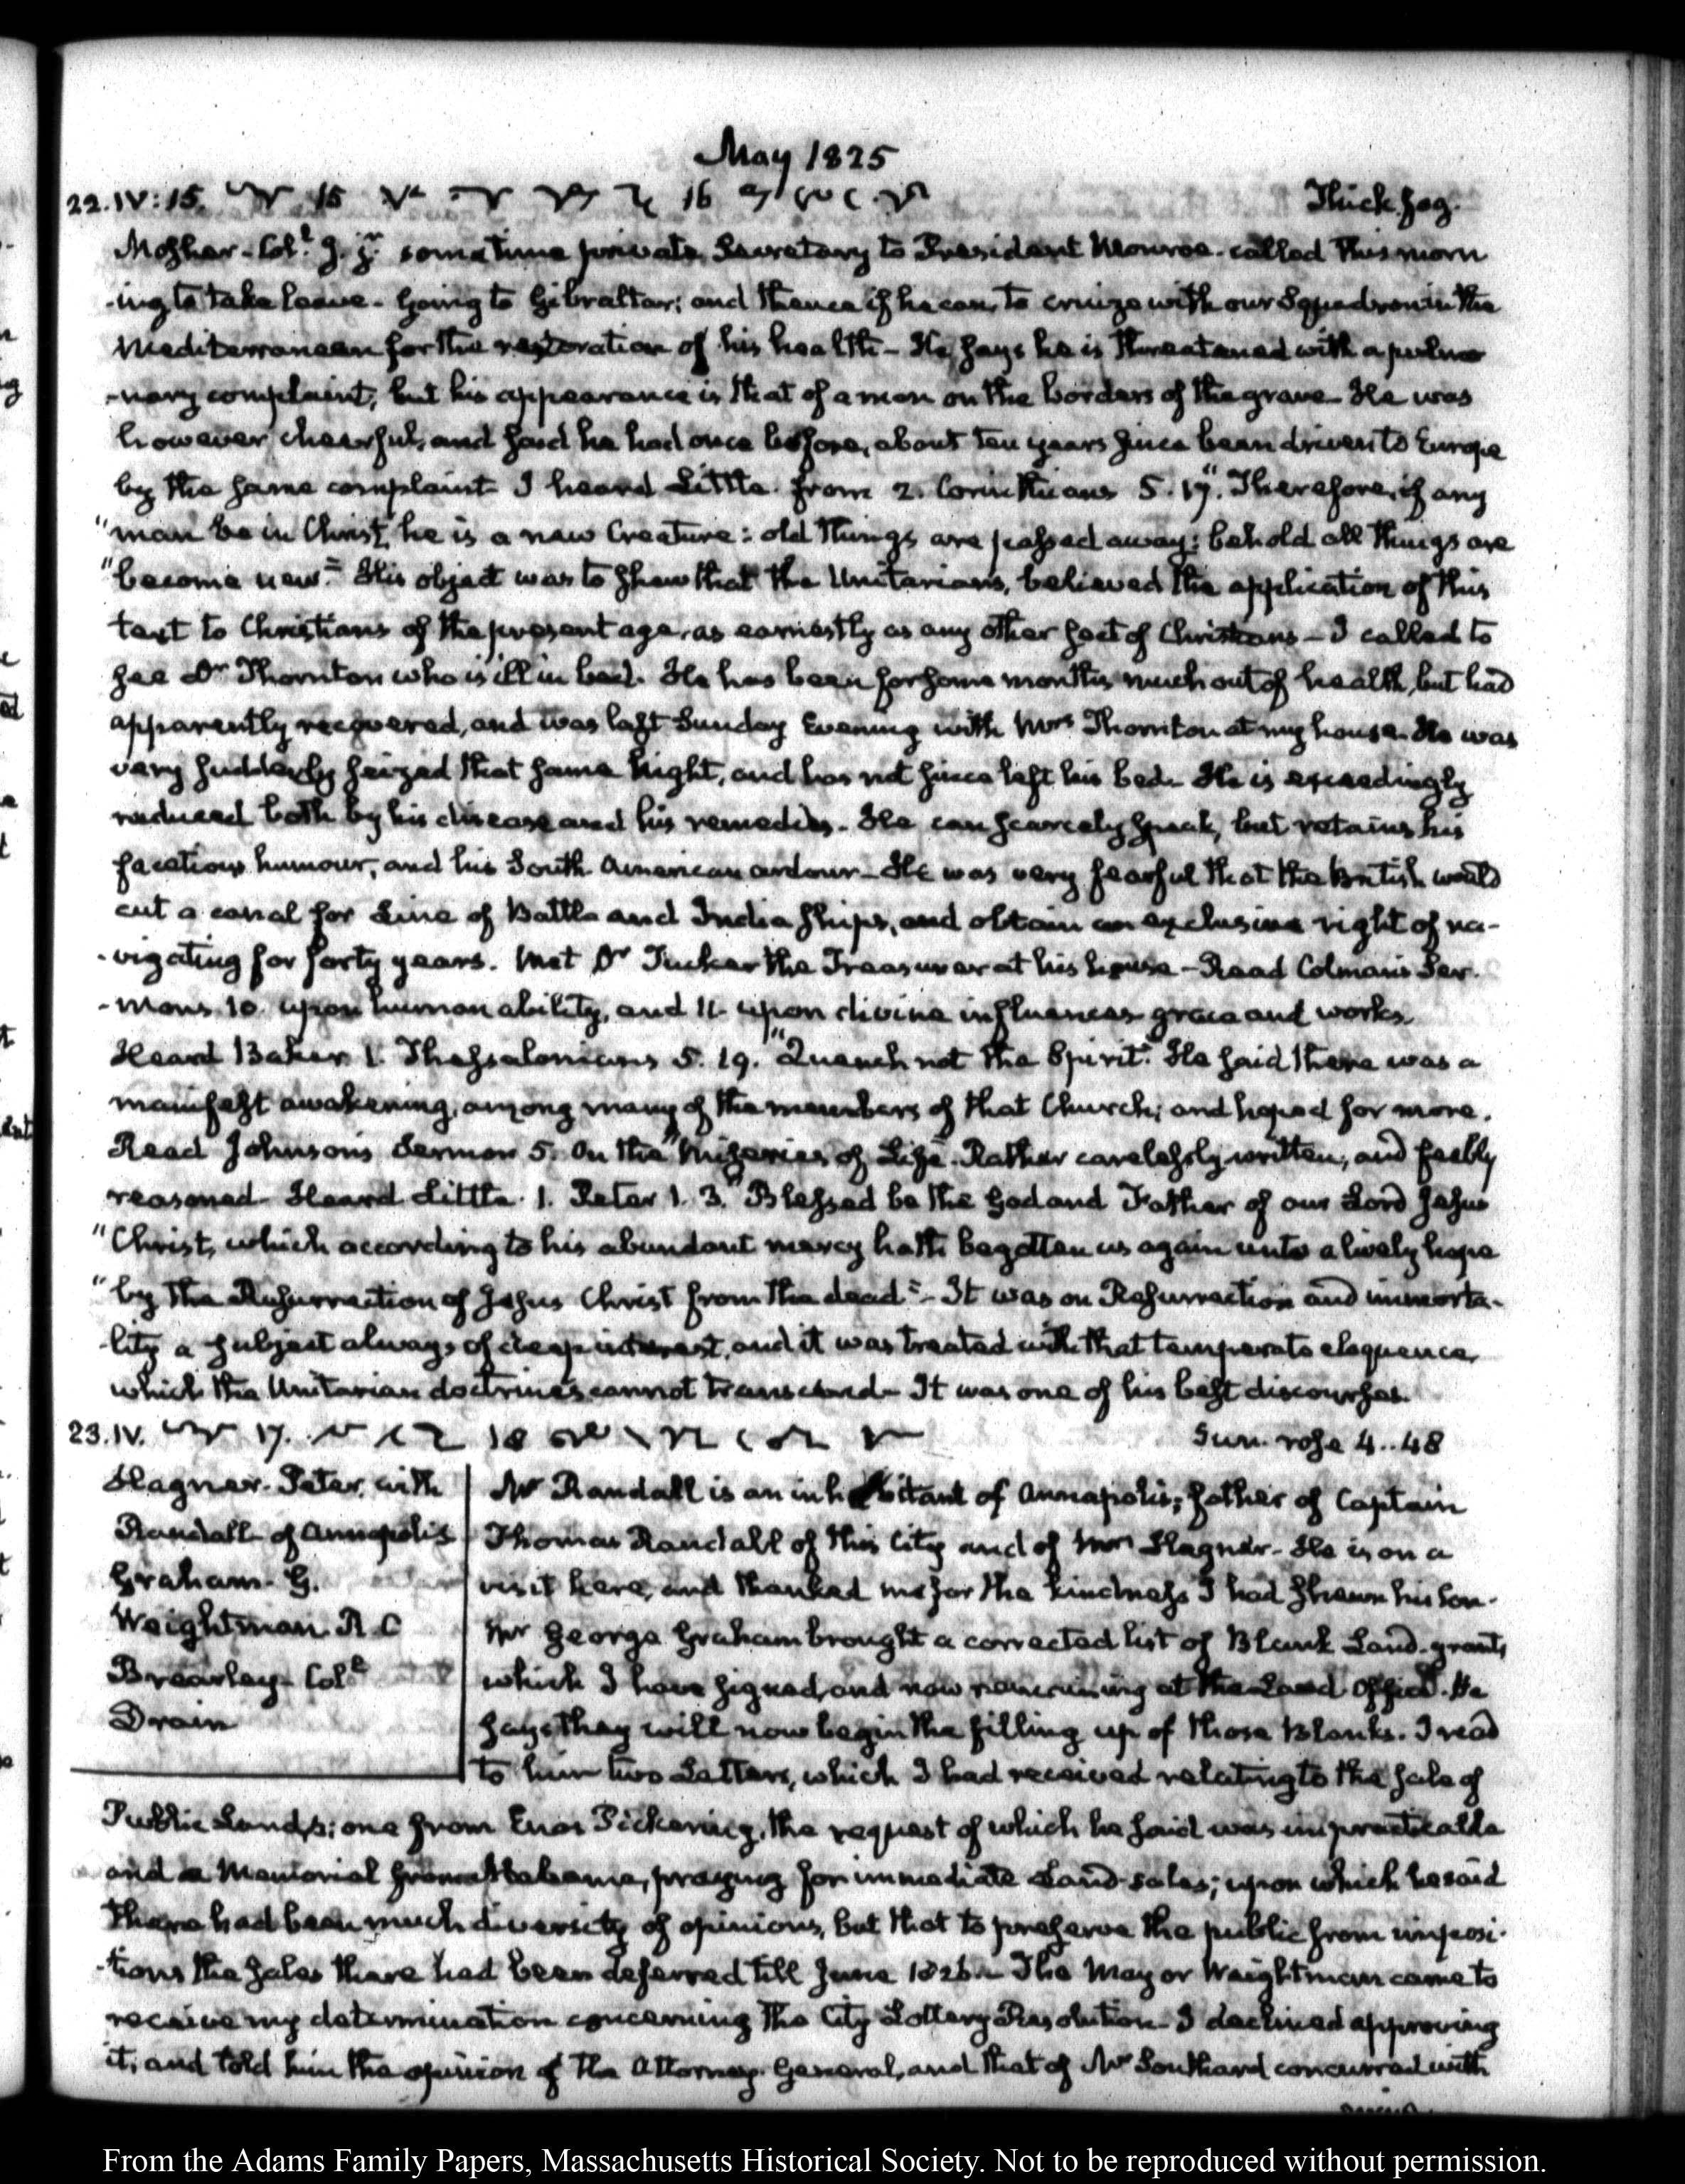 May 1825
22. IV: 15. 15 16 Thick fog.
Mosher - Col.l J. jr. sometime private Secretary to President Monroe - called this morn
-ing to take leave - Going to Gibraltar; and thence if he can, to cruize with our Squadron in the
Mediterranean for the restoration of his health - He says he is threatened with a pulmo
-nary complaint, but his appearance is that of a man on the borders of the grave - He was
however, cheerful, and said he had once before, about ten years since been driven to Europe
by the same complaint - I heard Little from 2. Corinthians 5. 17. "Therefore, if any
"man be in Christ, he is a new Creature: old things are passed away: behold all things are
"become new." His object was to shew that the Unitarians, believed the application of this
text to Christians of the present age, as earnestly as any other sect of Christians - I called to
see Dr Thornton who is ill in bed. He has been for some months much out of health, but had
apparently recovered, and was last Sunday Evening with Mrs Thornton at my house. He was
very suddenly seized that same Night, and has not since left his bed. He is exceedingly
reduced both by his disease and his remedies - He can scarcely speak, but retains his
facetious humour, and his South American ardour - He was very fearful that the British would
cut a canal for Line of Battle and India ships, and obtain an exclusive right of na-
-vigating for forty years. Met Dr Tucker the Treasurer at his house - Read Colman's Ser-
-mons. 10. upon human ability, and 11. upon divine influences grace and works.
Heard Baker 1. Thessalonians 5. 19. "Quench not the Spirit." He said there was a
manifest awakening, among many of the members of that Church; and hoped for more.
Read Johnson's Sermon 5. On the "Miseries of Life". Rather carelessly written, and feebly
reasoned - Heard Little 1. Peter 1. 3. "Blessed be the God and Father of our Lord Jesus
"Christ, which according to his abundant mercy hath begotten us again unto a lively hope
"by the Resurrection of Jesus Christ from the dead" - It was on Resurrection and immorta-
-lity a subject always of deep interest, and it was treated with that temperate eloquence,
which the Unitarian doctrines cannot transcend - It was one of his best discourses.
23. IV. 17. 18 Sun rose 4..48
Hagner. Peter, with
Randall of Annapolis
Graham - G.
Weightman R C
Brearley - Col.l
Drain
Mr Randall is an inhabitant of Annapolis; father of Captain
Thomas Randall of this City and of Mrs Hagner - He is on a
visit here, and thanked me for the kindness I had shewn his Son.
Mr George Graham brought a corrected list of Blank Land-grants
which I have signed, and now remaining at the Land Office. He
says they will now begin the filling up of those Blanks. I read
to him two Letters, which I had received relating to the sale of
Public Lands; one from Enos Pickering, the request of which he said was impracticable
and a Memorial from Alabama, praying for immediate Land-sales; upon which he said
there had been much diversity of opinions, but that to preserve the public from imposi-
-tions the sales there had been deferred till June 1826 - The Mayor Weightman came to
receive my determination concerning the City Lottery Resolution - I declined approving
it, and told him the opinion of the Attorney General, and that of Mr Southard concurred with
From the Adams Family Papers, Massachusetts Historical Society. Not to be reproduced without permission.